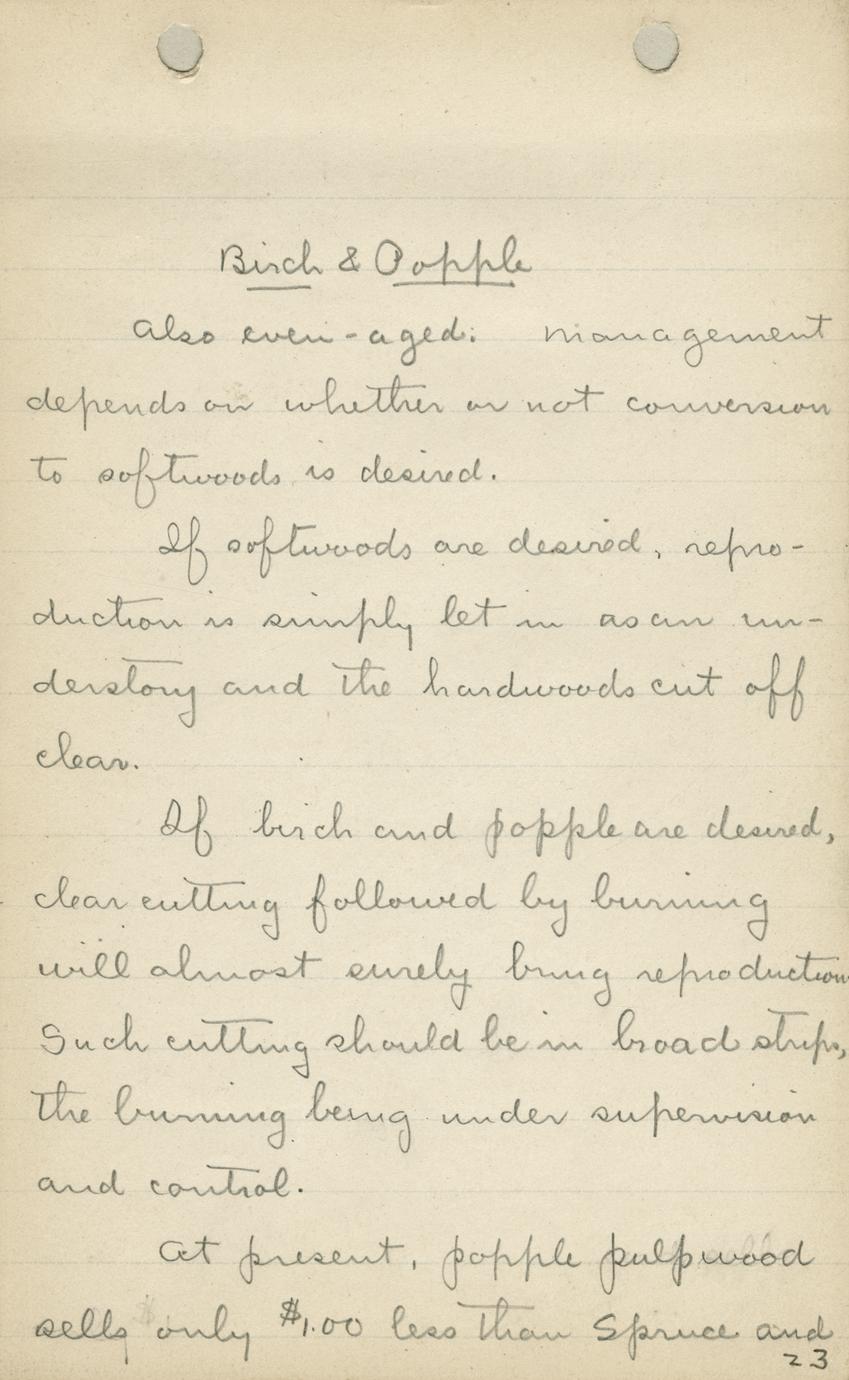 Birch & Popple
Also even-aged: management
depends on whether or not conversion
to softwoods is desired.
If softwoods are desired, repro-
duction is simply let in as an un-
derstory and the hardwoods cut off
clear.
If birch and popple are desired,
clear cutting followed by burning
will almost surely bring reproduction
Such cutting should be in broad strips,
the burning being under supervision
and control.
At present, popple pulpwood
sells only $1.00 less than Spruce and
23